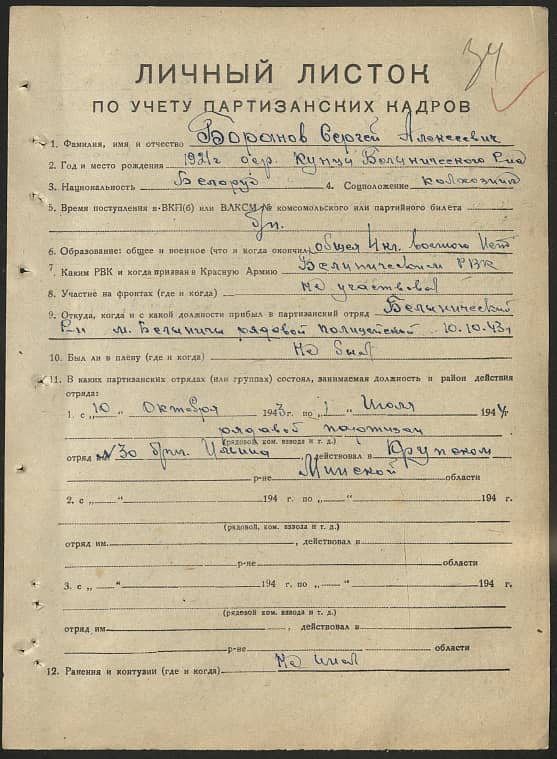 34
ЛИЧНЫЙ ЛИСТОК
ПО УЧЕТУ ПАРТИЗАНСКИХ КАДРОВ
1. Фамилия, имя и отчество Баранов Сергей Алексеевич
2. Год и место рождения 1921г дер. Купцы Белыничского р-на
3. Национальность Белорус 4. Соцположение колхозник
5. Время поступления в ВКП(б) или ВЛКСМ № комсомольского или партийного билета
б/п.
6. Образование: общее и военное (что и когда окончил) общее 4 кл. военного нет
7. Каким РВК и когда призван в Красную Армию Белыническим РВК
8. Участие на фронтах (где и когда) Не участвовал
9. Откуда, когда и с какой должности прибыл в партизанский отряд Белынический
Р-н м. Белыничи рядовой полицейский 10.10.43г
10. Был ли в плену (где и когда) Не был
11. В каких партизанских отрядах (или группах) состоял, занимаемая должность и район действия
отряда:
1. с „10“ Октября 1943 г. по „1“ Июля 1944 г.
рядовой партизан
(рядовой, ком. взвода и т. д.)
отряд им №30 бриг. , действовал в Крупском
р-не Минской области
2. с „ “ 194 г. по „ “ 194 г.
(рядовой, ком. взвода и т. д.)
отряд им. , действовал в
р-не области
3. с „ “ 194 г. по „ “ 194 г.
(рядовой, ком. взвода и т. д.)
отряд им. , действовал в
р-не области
12. Ранения и контузии (где и когда) Не имел